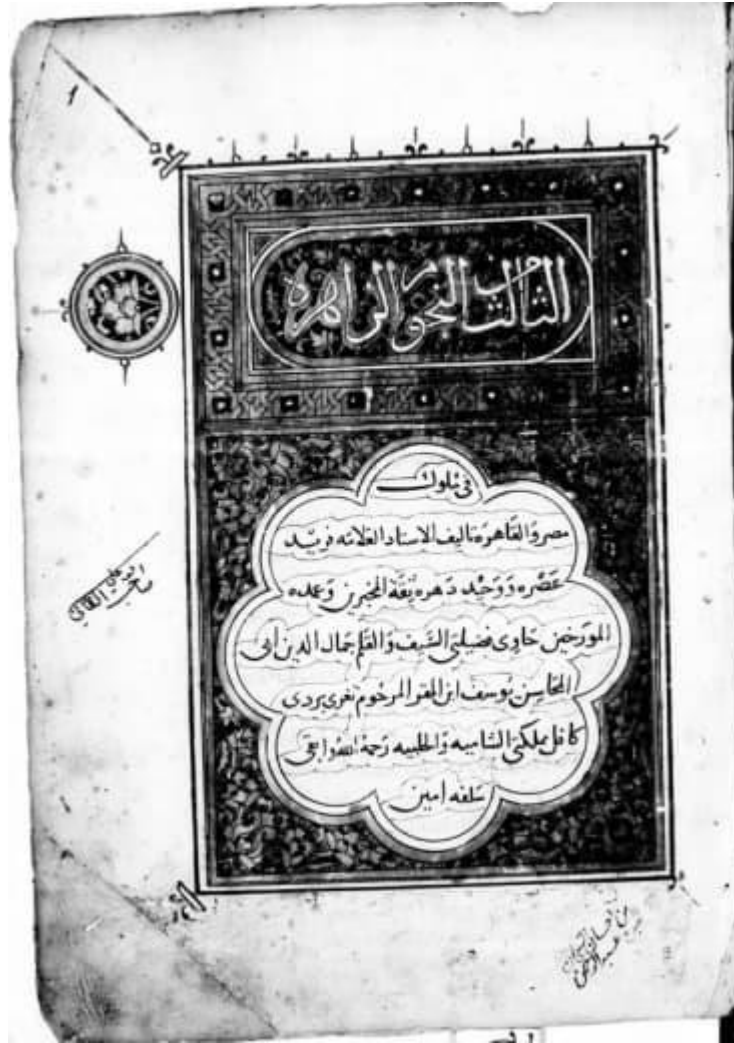 1
الثالث من النجوم الزاهرة
في ملوك
مصر والقاهرة تاليف الاستاد العلامه فريد
عَصْره وَوَحيْد دَهره ثِقَة المخبرين وَعمده
المورَخين حَاوى فضيلتى السَّيف وَالقَلم جمَال الدين أبى
المحَاسِن يُوسف ابن المقر المرحُوم تغرى بردى
كافل مملكتى الشاميه وَالحلبيه رَحمهُ الله وابقى
سَلفه امين